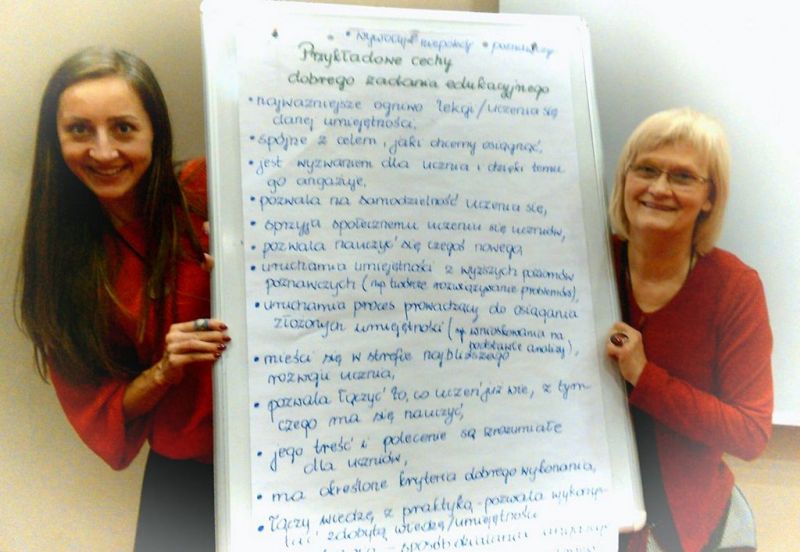 • wywołuje niepokój • poznawczy
Przykładowe cechy
dobrego zadania edukacyjnego
• najważniejsze ogniwo lekcji/uczenia się
danej umiejętności,
• spójne z celem, jaki chcemy osiągnąć,
• jest wyzwaniem dla ucznia i dzięki temu
go angażuje,
• pozwala na samodzielność uczenia się,
• sprzyja społecznemu uczeniu się uczniów,
• pozwala nauczyć się czegoś nowego,
• uruchamia umiejętności z wyższych poziomów
poznawczych (np. twórcze rozwiązywanie problemów),
• uruchamia proces prowadzący do osiągania
złożonych umiejętności (np. wnioskowania na
podstawie analizy),
• mieści się w strefie najbliższego
rozwoju ucznia,
• pozwala łączyć to, co uczeń już wie, z tym
czego ma się nauczyć,
• jego treść i polecenie są zrozumiałe
dla uczniów,
• ma określone kryteria dobrego wykonania,
• łączy wiedzę z praktyką - pozwala wykorzys-
tać zdobytą wiedzę/umiejętności
- sposób działania